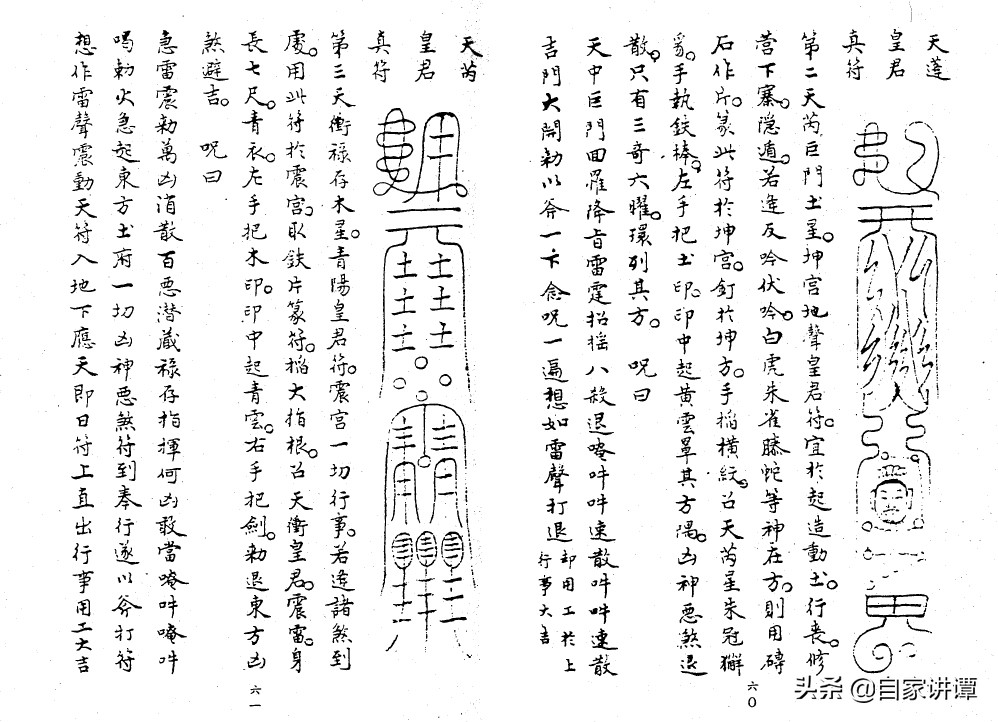 天蓬
皇君
真符
第二天芮巨門土星。坤宫地聲皇君符。宜於起造動土。行喪。修
营下寨。隐遁。若逢反吟伏吟。白虎朱雀螣蛇等神在方。則用磚
石作片。篆此符於坤宫。釘於坤方。手掐横紋。召天芮星朱冠獬
豸。手執鉄棒。左手把土印。印中起黄雲罩其方隅。凶神悪煞退
散。只有三奇六曜。環列其方。　咒曰
天中巨門四羅降旨雷霆招摇八殺退唵吽吽速散吽吽速散
吉門大開勅以斧一下念咒一遍想如雷聲打退却用工於上行事大吉
六〇
天芮
皇君
真符
第三天衝禄存木星。青陽皇君符。震宫一切行事。若逢諸煞到
處。用此符於震宫。取鉄片篆符。掐大指根。召天衝皇君。震雷。身
長七尺。青衣。左手把木印。印中起青雲。右手把劍。勅退東方凶
煞避吉。　咒曰
急雷震勅萬凶消散百悪潜藏禄存指揮何凶敢當唵吽唵吽
喝勅火急起東方土府一切凶神悪煞符到奉行遂以斧打符
想作雷聲震動天符入地下應天即日符上直出行事用工大吉
六一
头条 @自家讲谭